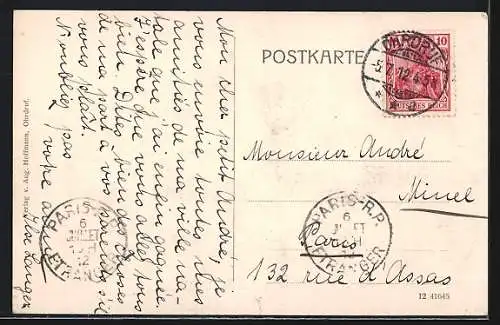 Mon cher petit André, je
vous envoie toutes mes
amitiés de ma ville na-
tale que j'ai enem gagnée
J'espère que vous allez tous
bien. Dites bien des choses
de ma part à vos parents s'il
vous plaît.
N'oubliez pas
votre amie
Ilse Langer
Verlag v. Aug. Hoffmann, Ohrdruf.
POSTKARTE
OHRDRUF
5.7.12
10
DEUTSCHES REICH
Monsieur André
Minel
Paris
132 rue d'Assas
PARIS-R.P.
6
JUILLET
12
ETRANGER
PARIS-R.P.
6
12
ETRANGER
12 41645